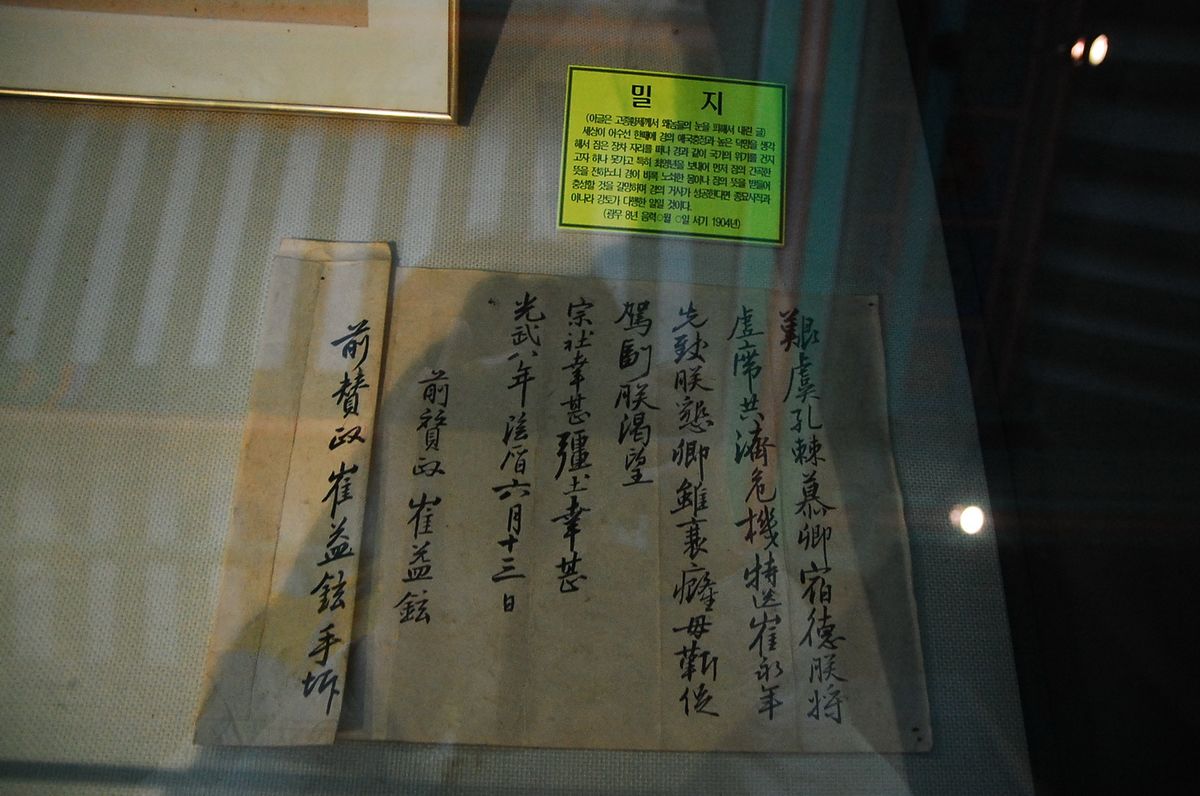 밀 지
(이글은 고종황제께서 왜놈들의 눈을 피해서 내린 글)
세상이 어수선 한때에 경의 애국충정과 높은 덕망을 생각
해서 짐은 장차 자리를 떠나 경과 같이 국가의 위기를 건지
고자 하나 못가고 특히 최영년을 보내어 먼저 짐의 간곡한
뜻을 전하노니 경이 비록 노쇠한 몸이나 짐의 뜻을 받들어
충성할 것을 갈망하며 경의 거사가 성공한다면 종묘사직과
이나라 강토가 다행한 일일 것이다.
(광무 8년 음력○월 ○일 서기 1904년)
艱虞孔棘慕卿宿德朕將
虛席共濟危機特送崔永年
先致朕懇卿雖衰癃毋靳促
駕副朕渴望
宗社幸甚疆土幸甚
光武八年陰曆六月十三日
前贊政崔益鉉
前贊政崔益鉉手坼